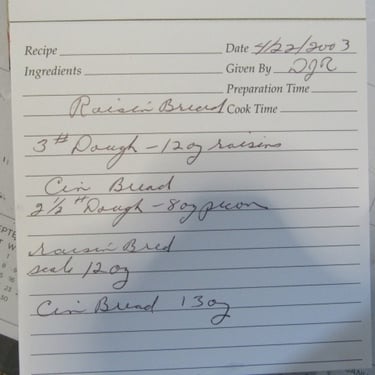 Recipe Date 4/22/2003
Ingredients Given By DJR
Preparation Time
Raisin Bread Cook Time
3# Dough - 12 oz raisins
Cin Bread
2 1/2# Dough - 8 oz pecon
raisin Bred
scale 12 oz
Cin Bread 13 oz